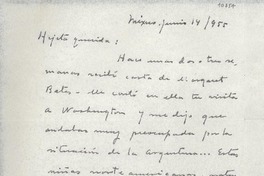 México, junio 14/955
Hijita querida:
Hace unas dos o tres se-
manas recibí carta de Margaret
Bates. Me contó en ella tu visita
a Washington y me dijo que
andabas muy preocupada por la
situación de la Argentina... Estas
niñas norteamericanas